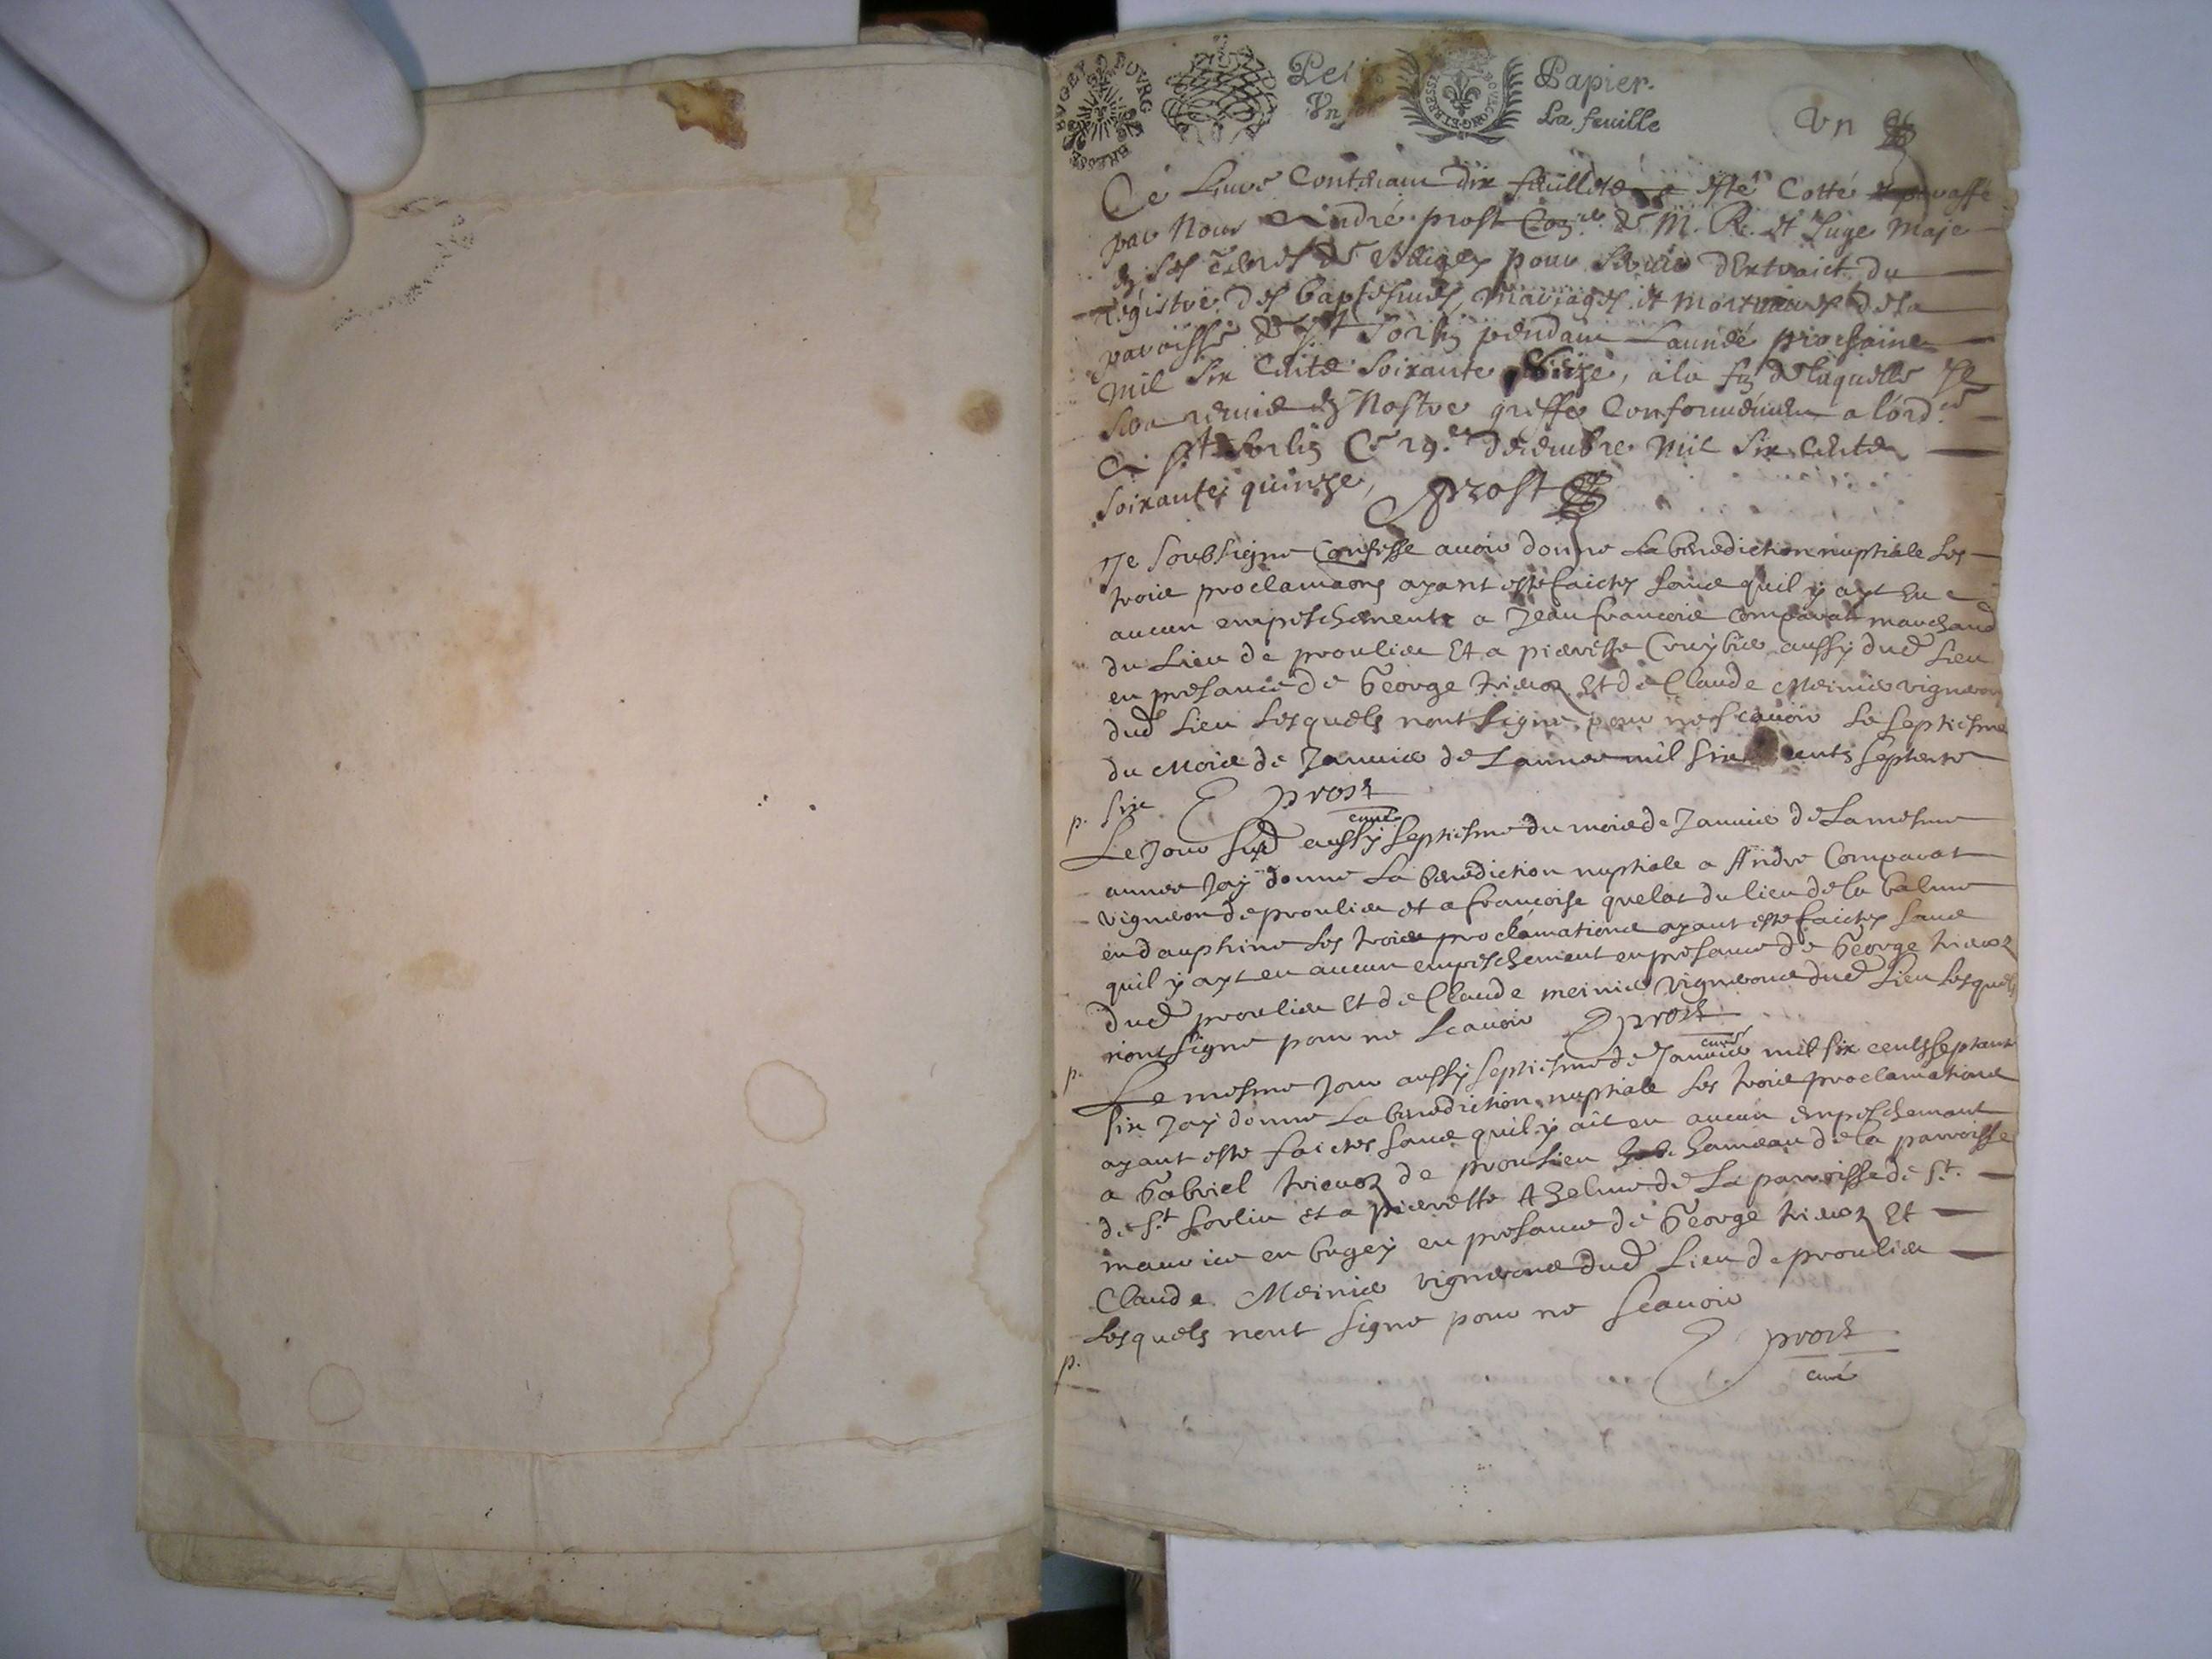 BVGEY BOVRG BRESSE
Petit Papier.
Vn La feuille
BOVRGONG·ET·BRESSE
Vn
Ce Liure Contenant dix feuillets a esté Cotté et paraffé
par Nous André prost Con.er du Roy et Juge Maje
ez terres de Bugey pour seruir d'Extraict du
régistre des baptesmes, mariages et mortuaires de la
paroisse de St Sorlin pendant l'année prochaine
mil six Cents soixante seize, a la fin de laquelle Il
sera remis en Nostre greffe Conformément a lord.ce
A St Sorlin Ce 29.e décembre mil six Cents
soixante quinze, prost
Je soubsigne Confesse auoir donne La benediction nuptiale Les
trois proclamaons ayant este faictes sans quil y ayt eu
aucun empeschements a Jean francois Comparat marchand
du Lieu de proulieu Et a pierrette aussy dud Lieu
en presance de George trieuoz Et de Claude Meinier vigneron
dud Lieu Lesquels nont signe pour ne scauoir Le septiesme
du Mois de Januier de Lannee mil six cents septente
six prost
curé
p.
Le Jour sud aussy septiesme du mois de Januier de La mesme
annee Jay donne La benediction nuptiale a Andre Comparat
vigneron de proulieu et a francoise quelat du lieu de la balme
en dauphine Les trois proclamations ayant este faictes sans
quil y ayt eu aucun empeschement en presance de George trieuoz
dud proulieu Et de Claude meinier vignerons dud Lieu Lesquels
nont signe pour ne scauoir prost
curé
p.
Le mesme Jour aussy septiesme de Januier mil six cents septante
six Jay donne La benediction nuptiale Les trois proclamations
ayant este faictes sans quil y ait eu aucun empeschemant
a Gabriel trieuoz de proulieu hameau de la parroisse
de St Sorlin et a pierrette Azelme de La parroisse de St.
maurice en bugey en presance de George trieuoz Et
Claude Meinier vignerons dud Lieu de proulieu
Lesquels nont signe pour ne scauoir
prost
curé
p.